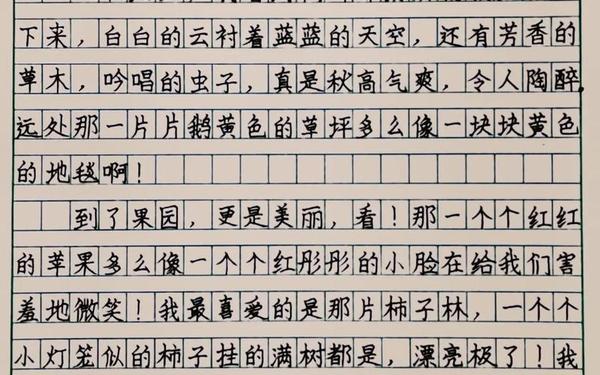 下来，白白的云衬着蓝蓝的天空，还有芳香的
草木，吟唱的虫子，真是秋高气爽，令人陶醉。
远处那一片片鹅黄色的草坪多么像一块块黄色
的地毯啊！
到了果园，更是美丽，看！那一个个红红
的苹果多么像一个个红彤彤的小脸在给我们害
羞地微笑！我最喜爱的是那片柿子林，一个个
小灯笼似的柿子挂的满树都是，漂亮极了！我